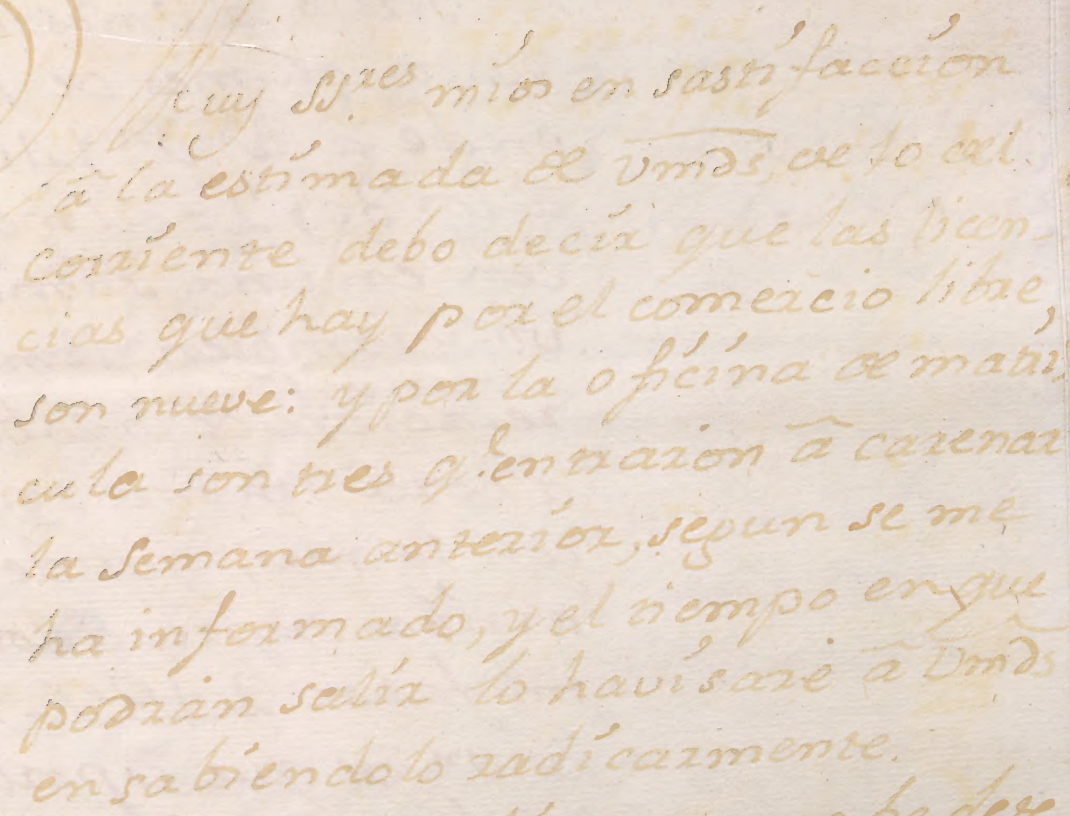 Muy SS.res mios en sastifaccion
â la estimada de Vmds, de 10 del
corriente debo decir que las licen
cias que hay por el comercio libre,
son nueve: y por la oficina de matri
cula son tres q.e entraron â carenar
la Semana anterior, segun se me
ha informado, y el tiempo en que
podran salir lo havisare â Vmds
en sabiendolo radicarmente.